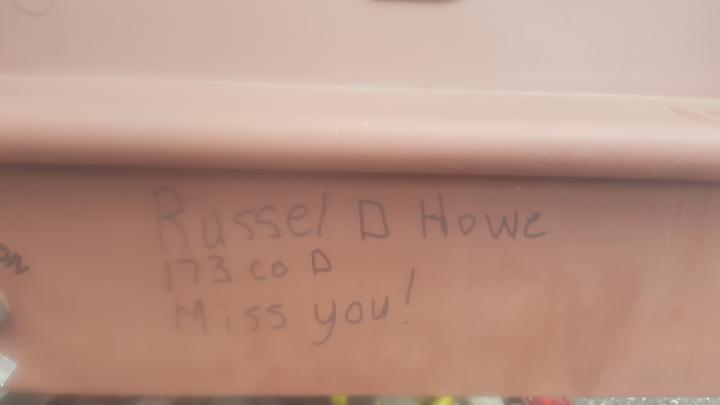 Russel D Howe
173 co D
Miss you!